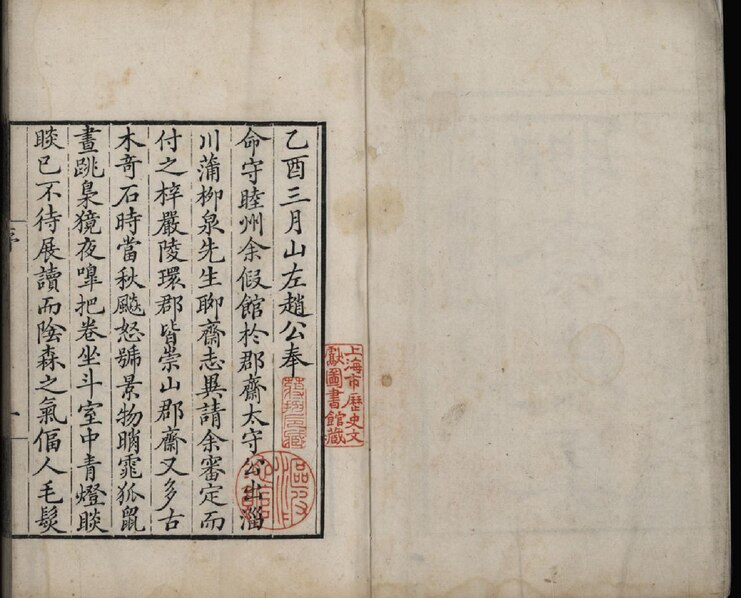 乙酉三月山左趙公奉
命守睦州余假館於郡齋太守公出淄
川蒲柳泉先生聊齋志異請余審定而
付之梓嚴陵環郡皆崇山郡齋又多古
木奇石時當秋飇怒號景物睄窕狐鼠
晝跳梟獍夜嘷把卷坐斗室中青燈睒
睒已不待展讀而陰森之氣偪人毛髮
序
一
上海市歷史文
獻圖書館藏